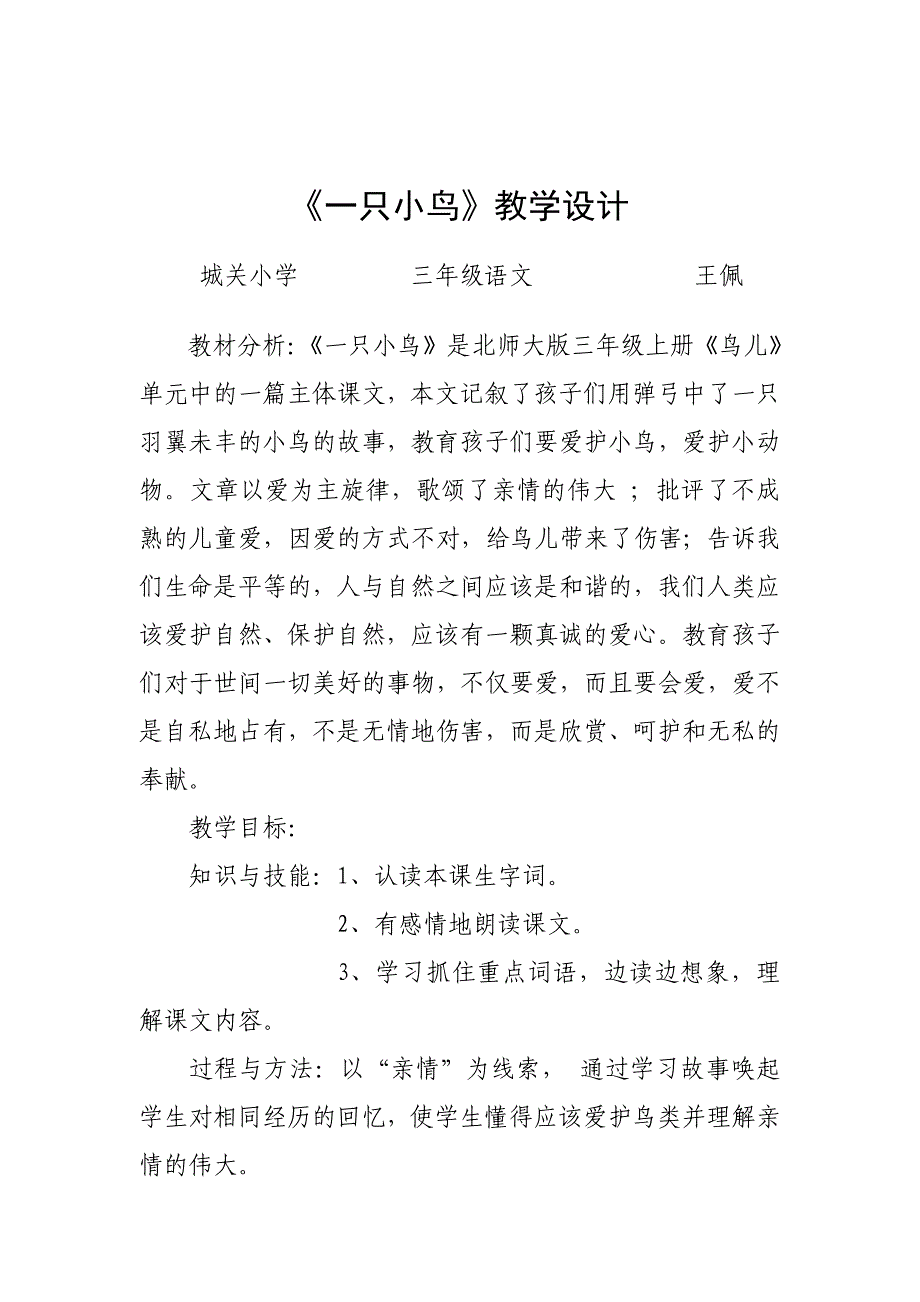 《一只小鸟》教学设计
城关小学 三年级语文 王佩
教材分析：《一只小鸟》是北师大版三年级上册《鸟儿》
单元中的一篇主体课文，本文记叙了孩子们用弹弓中了一只
羽翼未丰的小鸟的故事，教育孩子们要爱护小鸟，爱护小动
物。文章以爱为主旋律，歌颂了亲情的伟大 ；批评了不成
熟的儿童爱，因爱的方式不对，给鸟儿带来了伤害；告诉我
们生命是平等的，人与自然之间应该是和谐的，我们人类应
该爱护自然、保护自然，应该有一颗真诚的爱心。教育孩子
们对于世间一切美好的事物，不仅要爱，而且要会爱，爱不
是自私地占有，不是无情地伤害，而是欣赏、呵护和无私的
奉献。
教学目标：
知识与技能：1、认读本课生字词。
2、有感情地朗读课文。
3、学习抓住重点词语，边读边想象，理
解课文内容。
过程与方法：以“亲情”为线索， 通过学习故事唤起
学生对相同经历的回忆，使学生懂得应该爱护鸟类并理解亲
情的伟大。